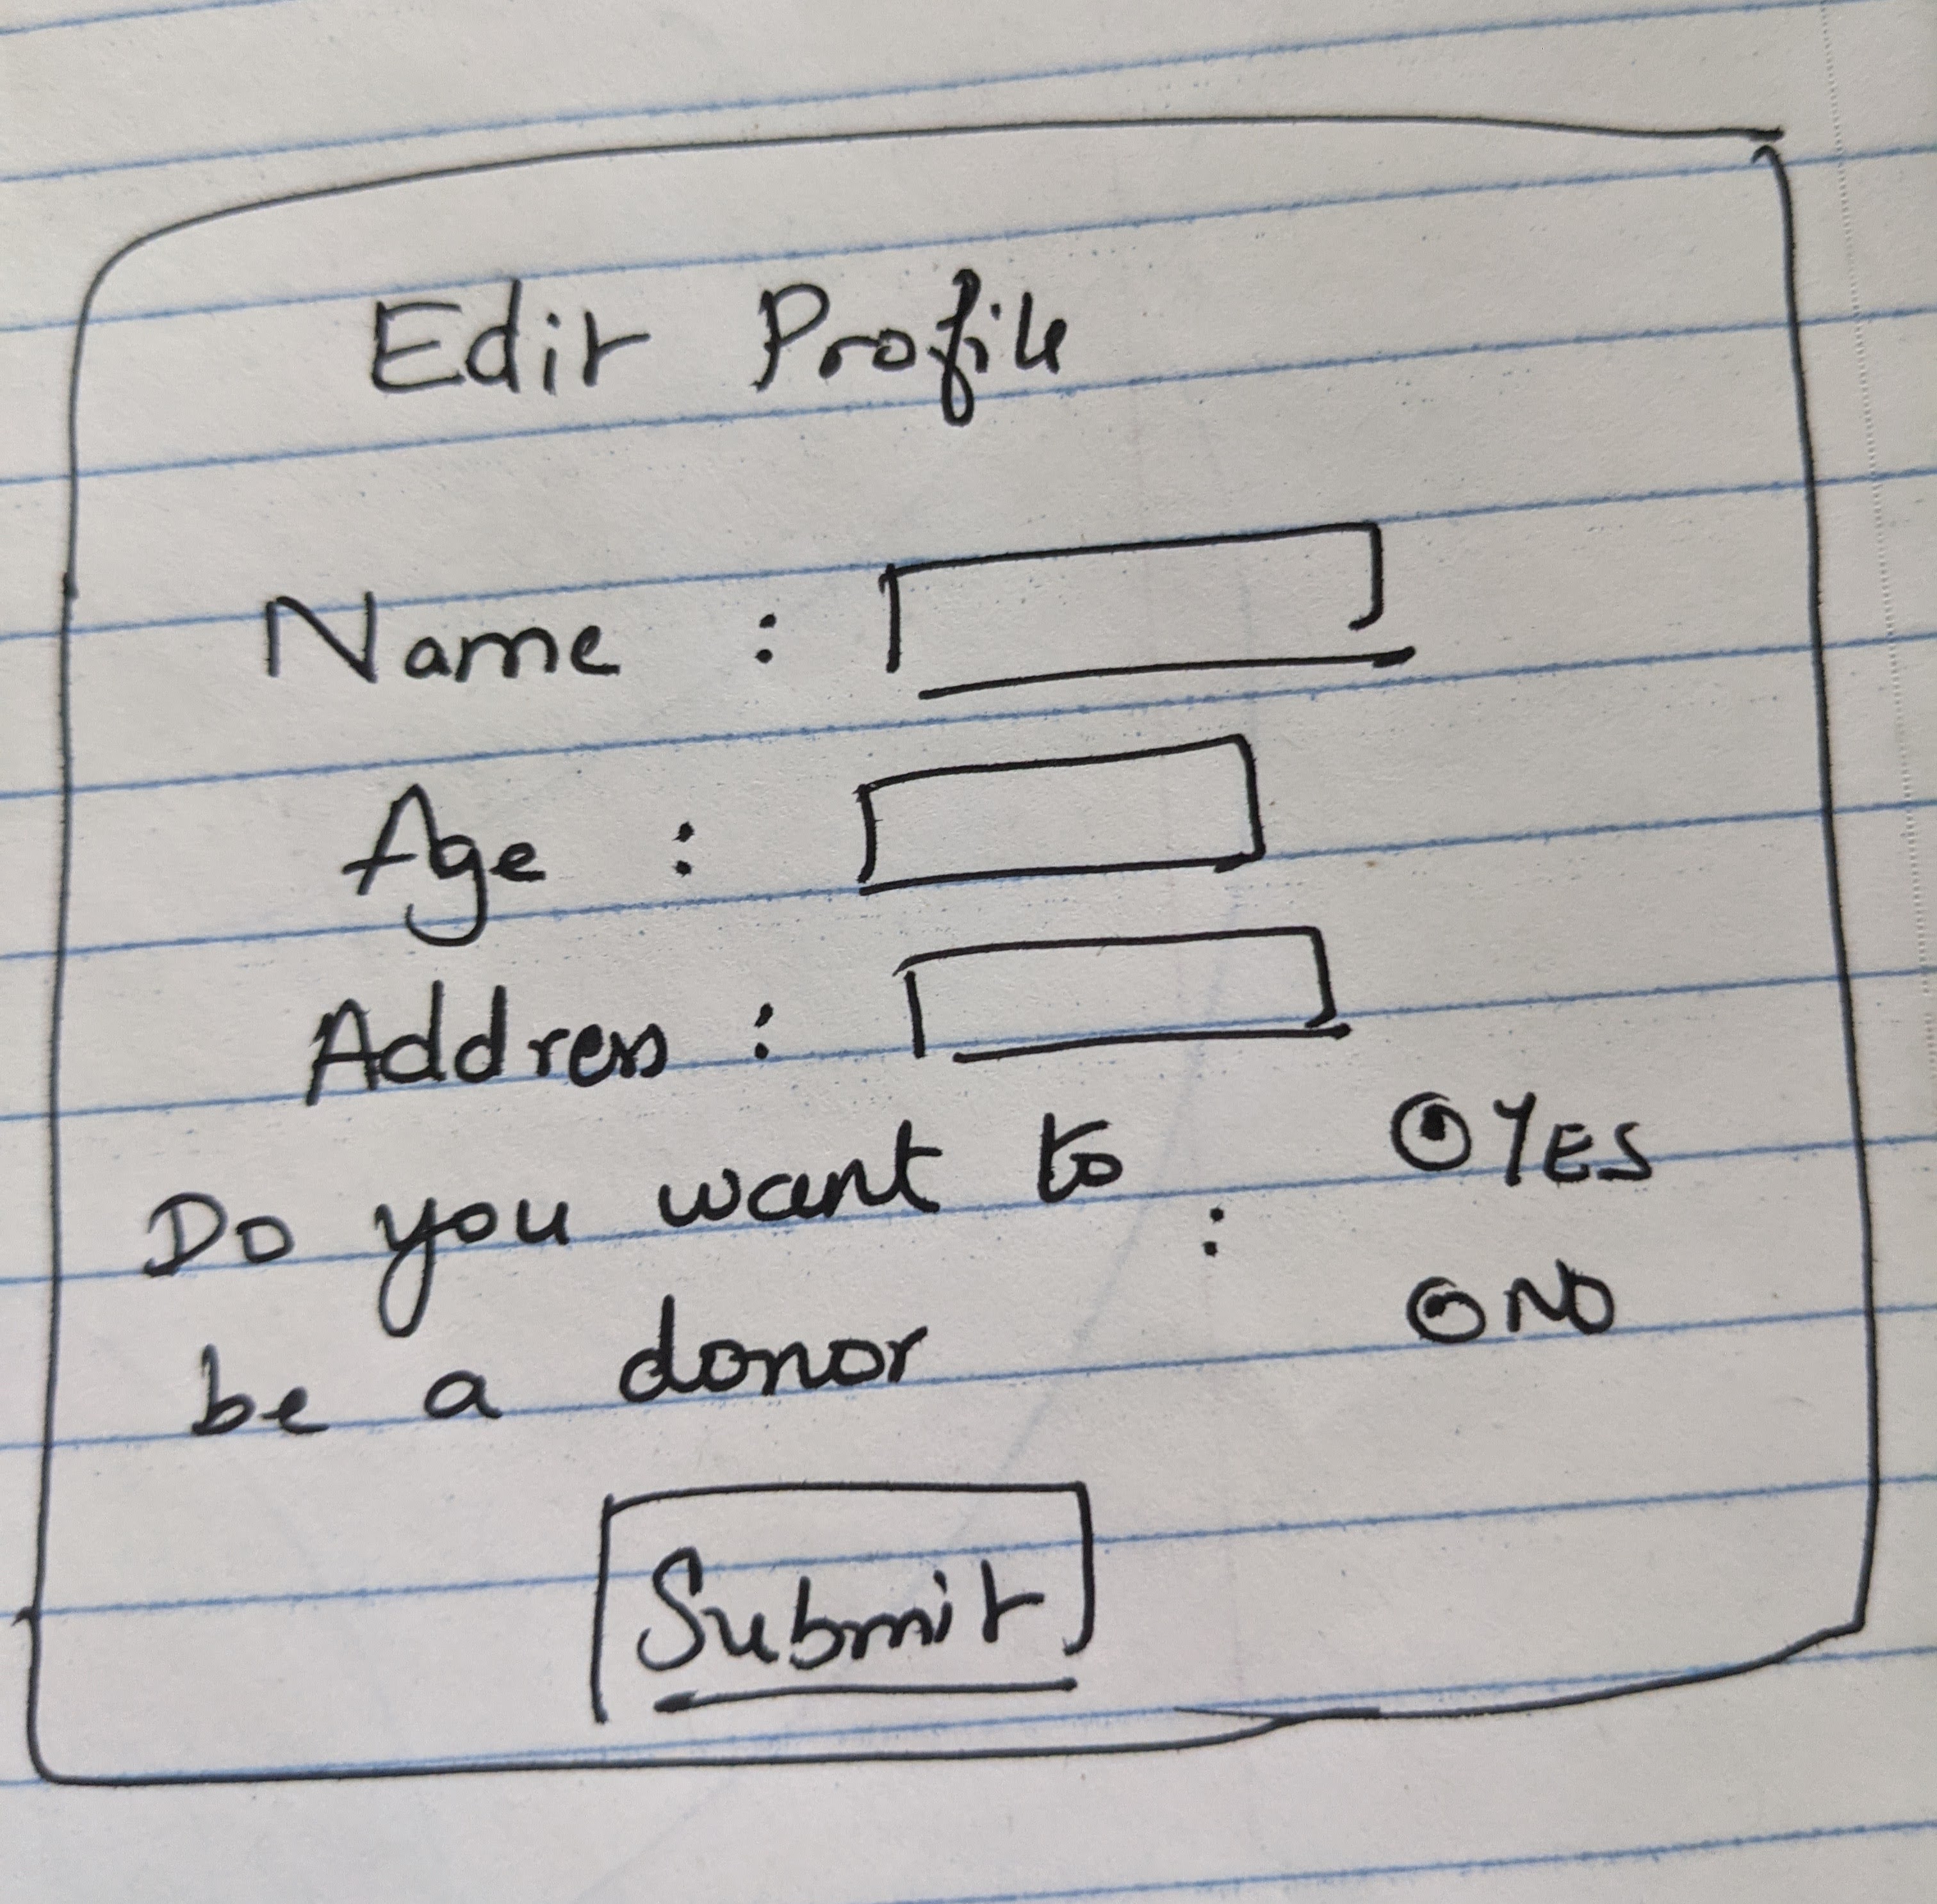 Edit Profile
Name :
Age :
Address :
Do you want to : YES
be a donor NO
Submit